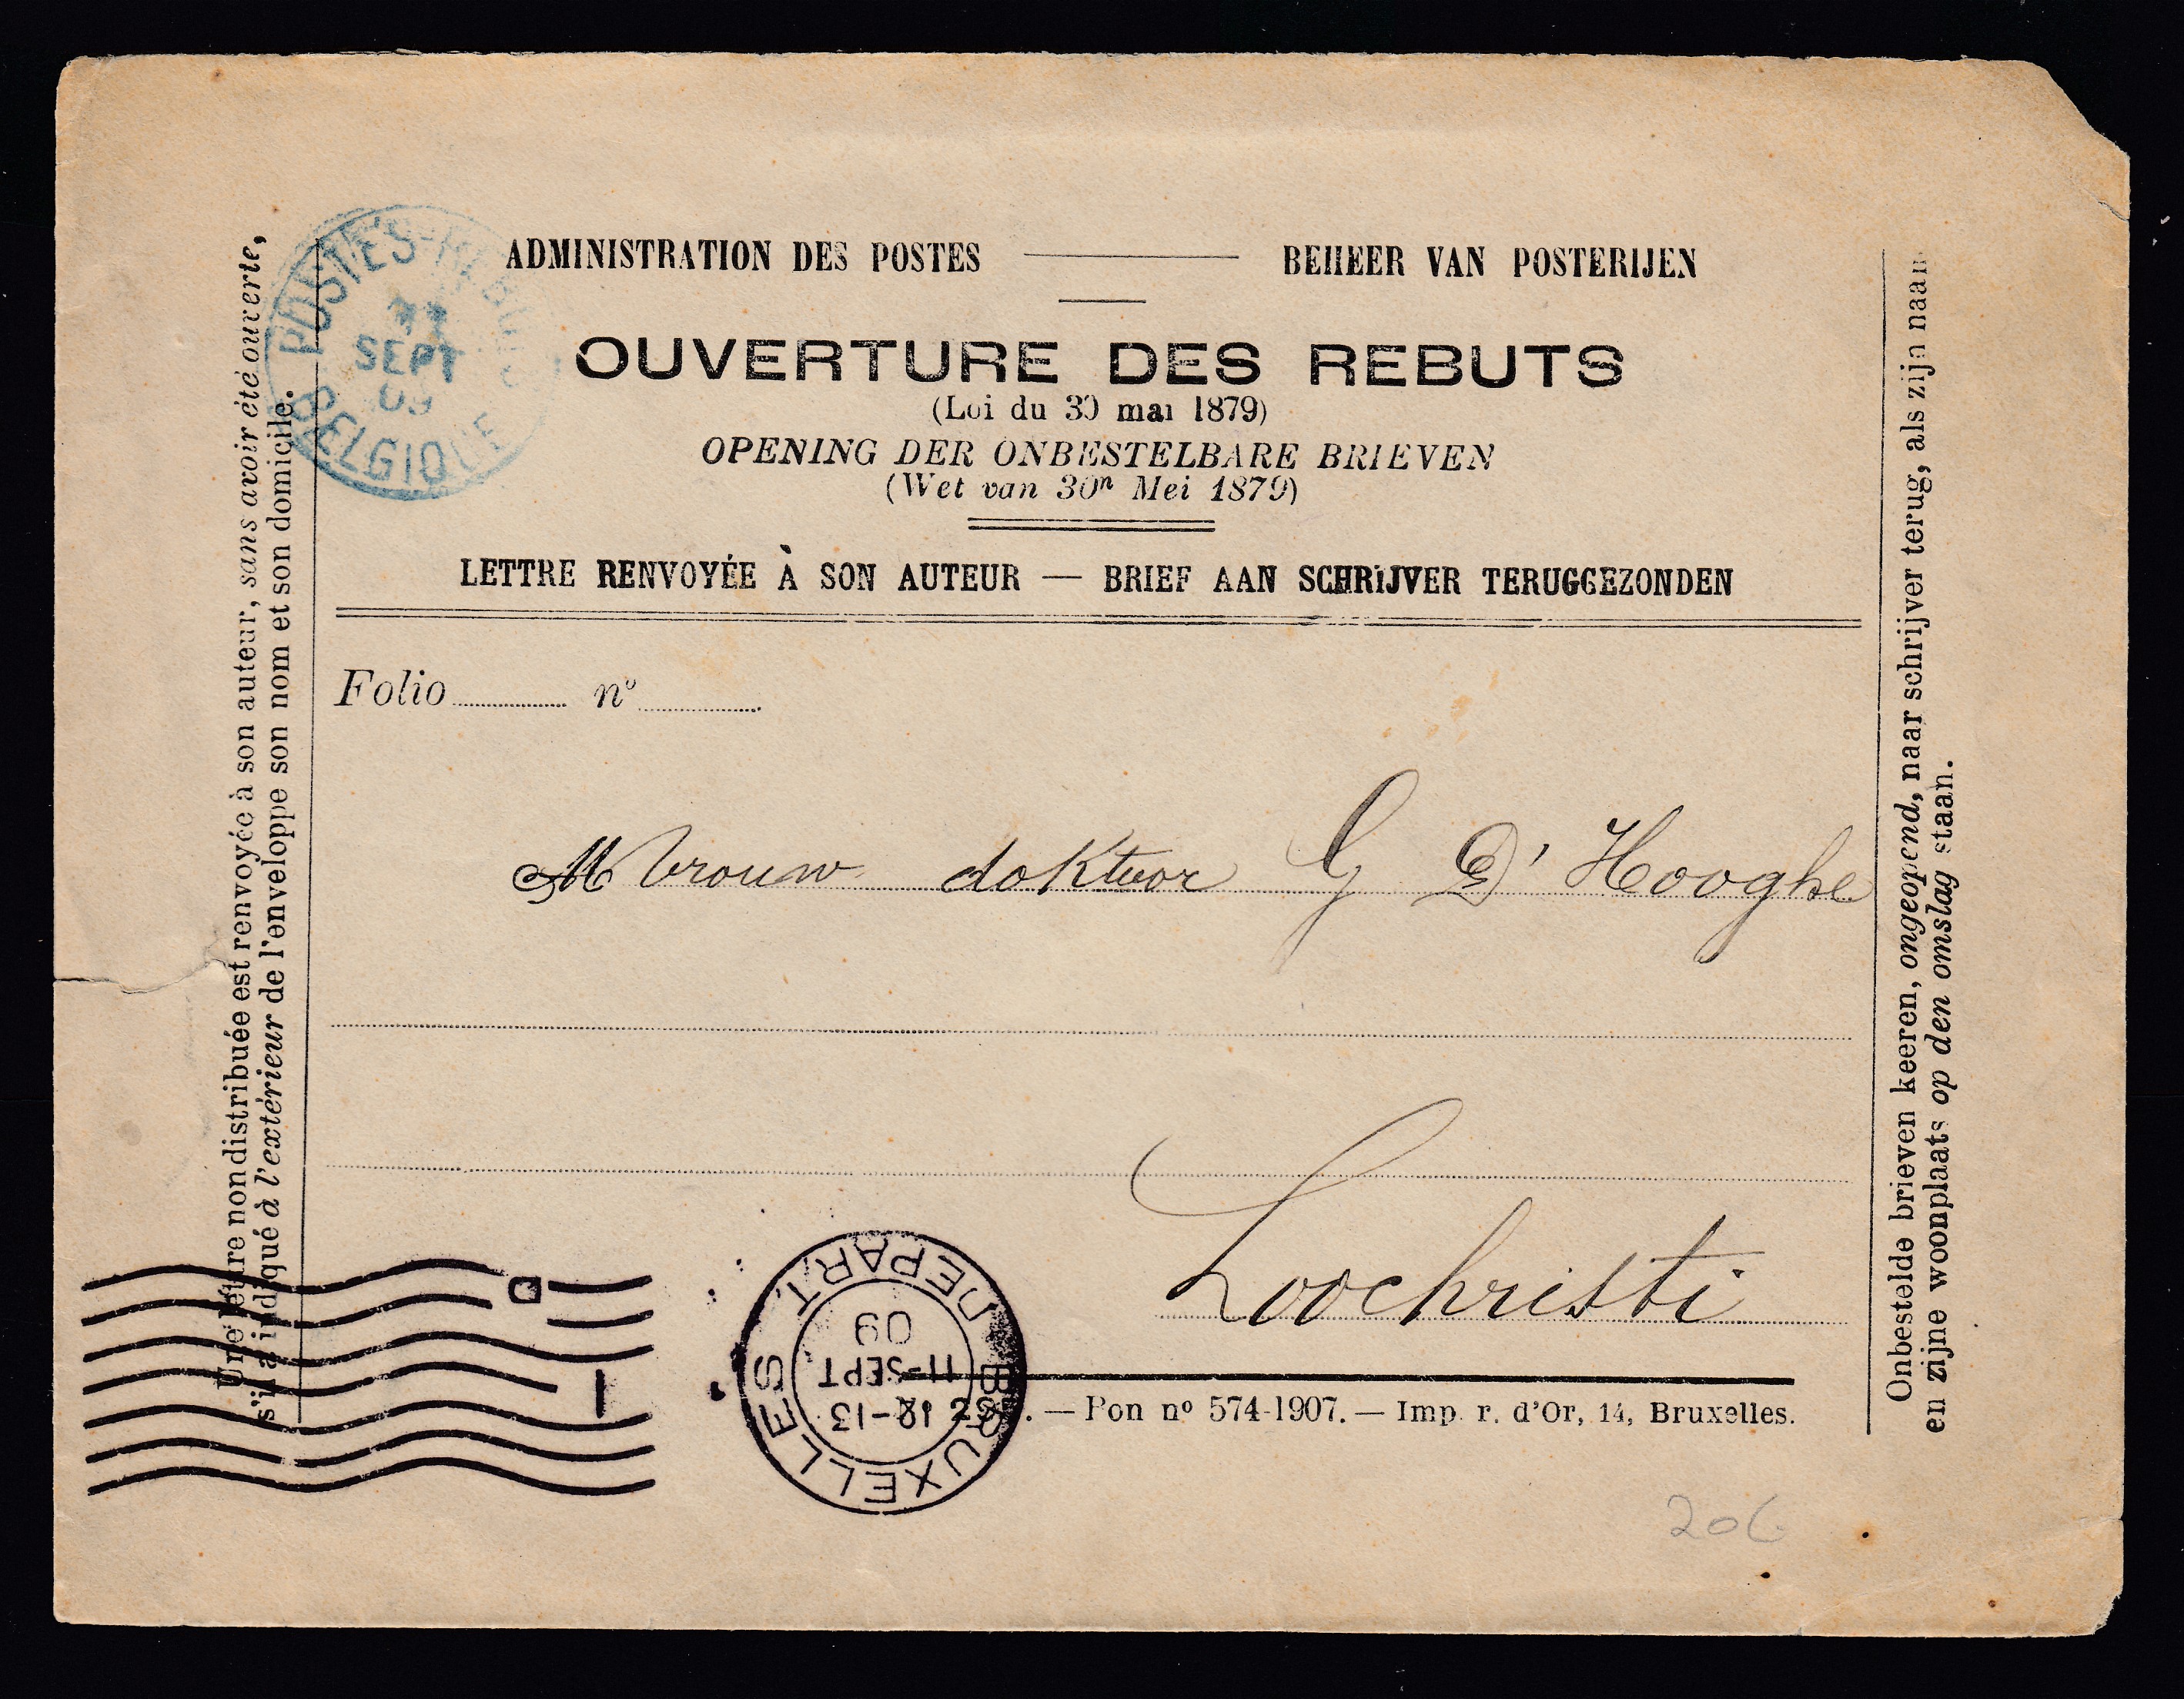 ADMINISTRATION DES POSTES — BEHEER VAN POSTERIJEN
OUVERTURE DES REBUTS
(Loi du 30 mai 1879)
OPENING DER ONBESTELBARE BRIEVEN
(Wet van 30n Mei 1879)
LETTRE RENVOYÉE À SON AUTEUR — BRIEF AAN SCHRIJVER TERUGGEZONDEN
Folio n°
Mvrouw doktoor G D'Hooghe
Loochristi
— Pon no 574-1907. — Imp. r. d'Or, 14, Bruxelles.
Une lettre non distribuée est renvoyée à son auteur, sans avoir été ouverte,
s'il a indiqué à l'extérieur de l'enveloppe son nom et son domicile.
Onbestelde brieven keeren, ongeopend, naar schrijver terug, als zijn naam
en zijne woonplaats op den omslag staan.
POSTES-REBUTS
SEPT
09
BELGIQUE
BRUXELLES DEPART
12-13
11-SEPT
09
206